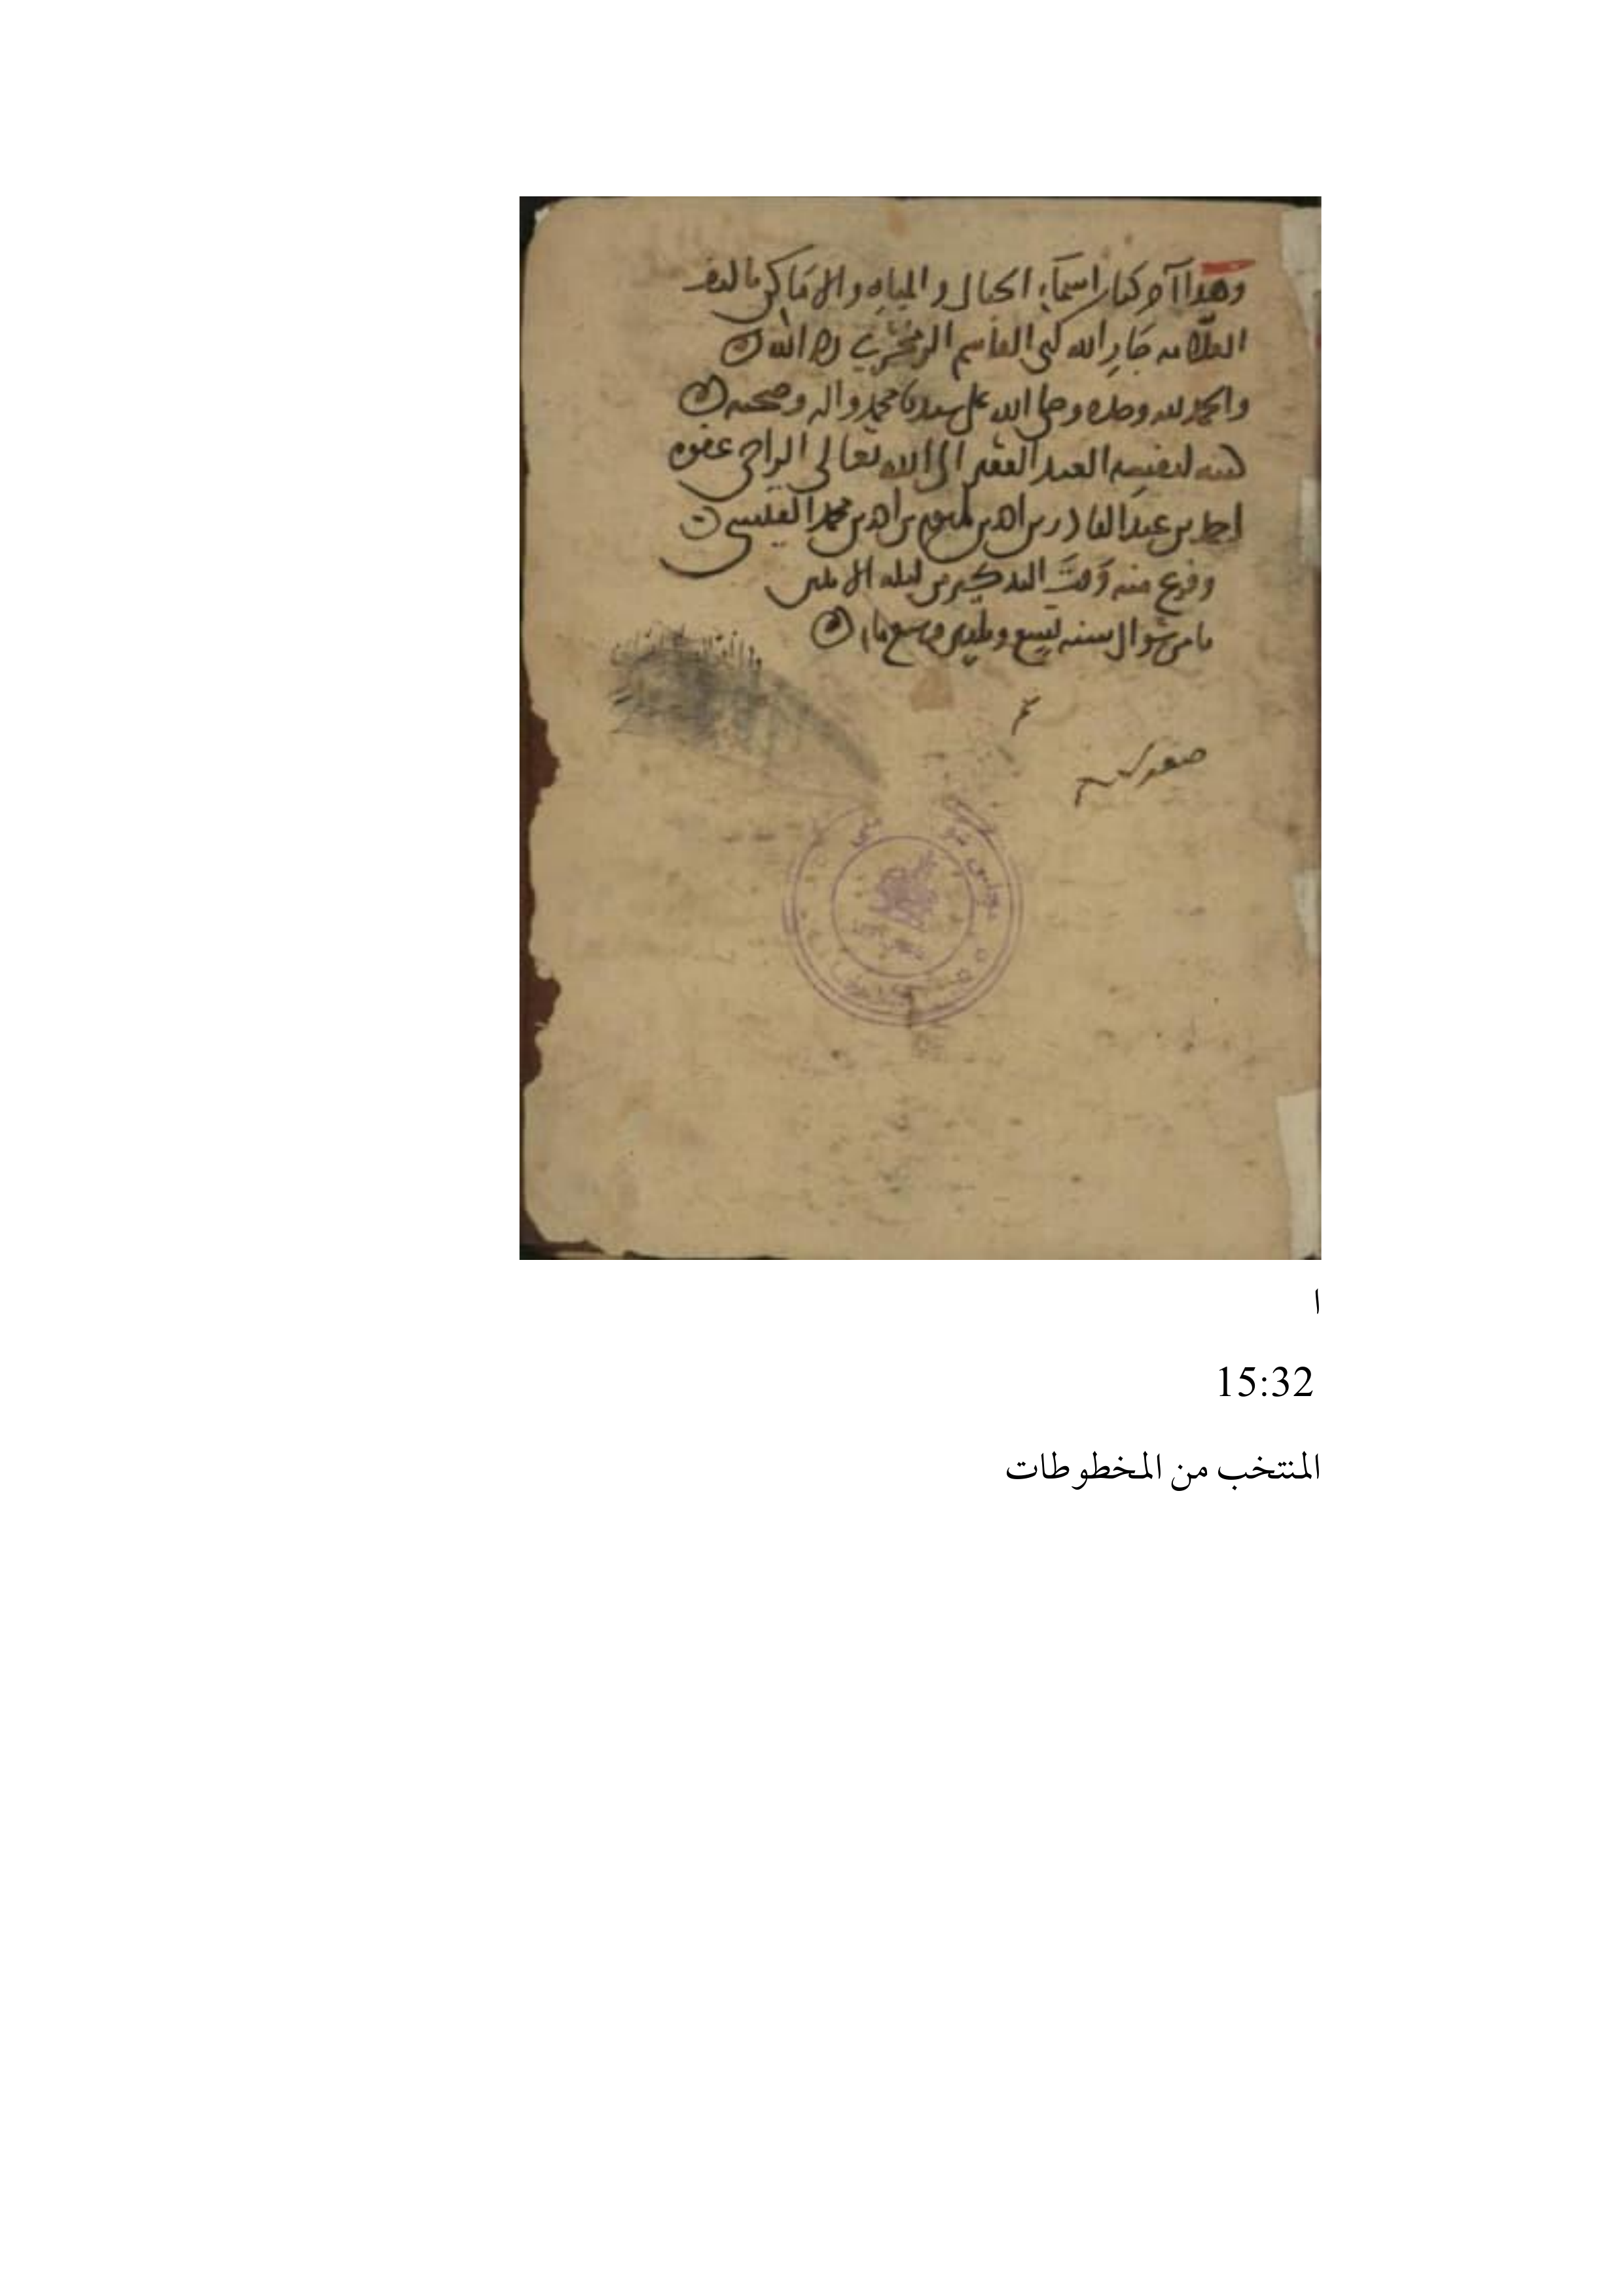 وهذا آخر كتاب اسماء الجبال والمياه والاماكن تاليف
العلامة جار الله ابي القاسم الزمخشري رحمه الله
والحمد لله وحده وصلى الله على سيدنا محمد واله وصحبه
كتبه لنفسه العبد الفقير الى الله تعالى الراجي عفوه
احمد بن عبد القادر بن احمد بن مكتوم بن احمد بن محمد القيسي
وفرغ منه وقت التذكير من ليلة الاثنين
ثامن شوال سنة تسع وثلثين وسبع مائة
ا
15:32
المنتخب من المخطوطات